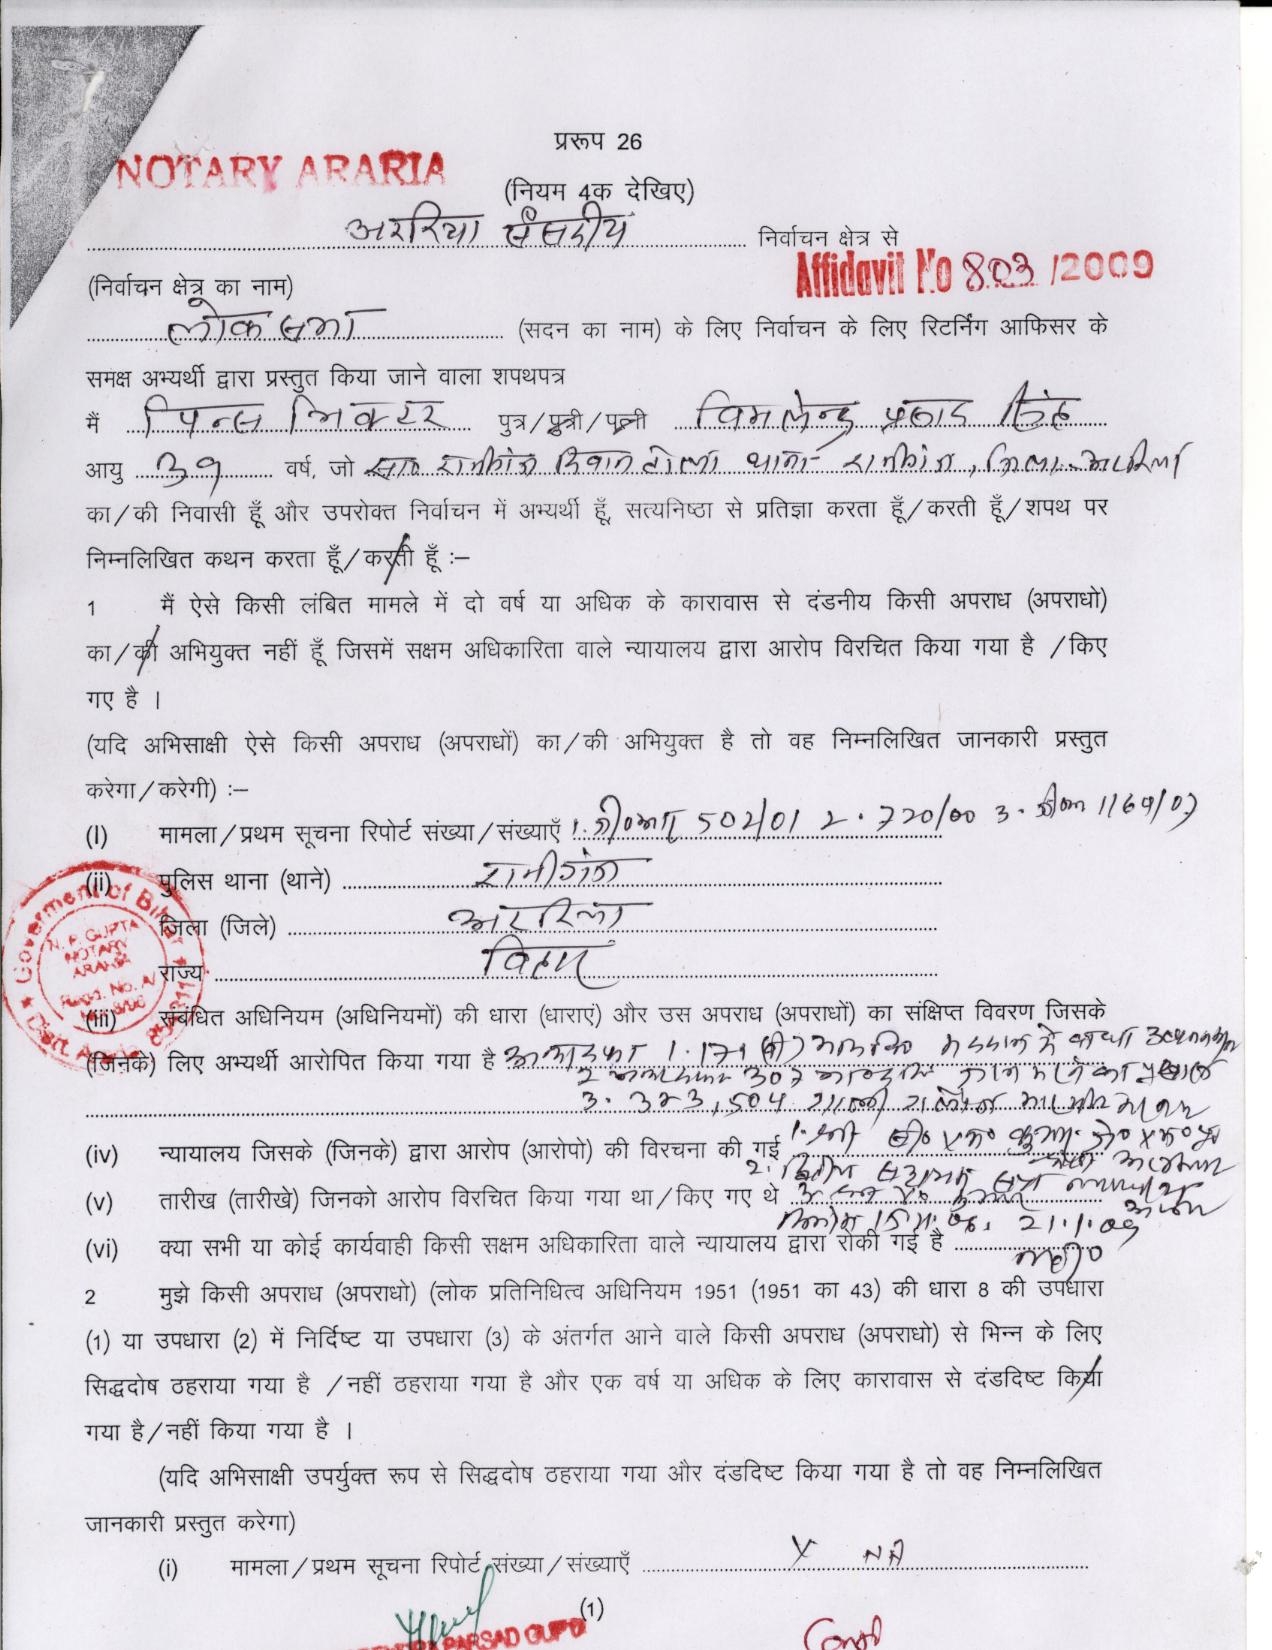 प्ररूप 26
NOTARY ARARIA
(नियम 4क देखिए)
अररिया संसदीय निर्वाचन क्षेत्र से
Affidavit No 803 /2009
(निर्वाचन क्षेत्र का नाम)
लोक सभा (सदन का नाम) के लिए निर्वाचन के लिए रिटर्निंग आफिसर के
समक्ष अभ्यर्थी द्वारा प्रस्तुत किया जाने वाला शपथपत्र
मैं प्रिन्स भिक्टर पुत्र/पुत्री/पत्नी विमलेन्दु प्रसाद सिंह
आयु 39 वर्ष, जो थाना रानीगंज, जिला अररिया
का/की निवासी हूँ और उपरोक्त निर्वाचन में अभ्यर्थी हूँ, सत्यनिष्ठा से प्रतिज्ञा करता हूँ/करती हूँ/शपथ पर
निम्नलिखित कथन करता हूँ/करती हूँ :–
1 मैं ऐसे किसी लंबित मामले में दो वर्ष या अधिक के कारावास से दंडनीय किसी अपराध (अपराधो)
का/की अभियुक्त नहीं हूँ जिसमें सक्षम अधिकारिता वाले न्यायालय द्वारा आरोप विरचित किया गया है /किए
गए है ।
(यदि अभिसाक्षी ऐसे किसी अपराध (अपराधों) का/की अभियुक्त है तो वह निम्नलिखित जानकारी प्रस्तुत
करेगा/करेगी) :–
(I) मामला/प्रथम सूचना रिपोर्ट संख्या/संख्याएँ 1. 502/01 2. 720/00 3. 1169/07
(ii) पुलिस थाना (थाने) रानीगंज
जिला (जिले) अररिया
राज्य बिहार
Goverment of Bihar
N. P. GUPTA
NOTARY
ARARIA
Regd. No.
(iii) संबंधित अधिनियम (अधिनियमों) की धारा (धाराएं) और उस अपराध (अपराधों) का संक्षिप्त विवरण जिसके
(जिनके) लिए अभ्यर्थी आरोपित किया गया है 1. 171 में
2 307
3. 323, 504
(iv) न्यायालय जिसके (जिनके) द्वारा आरोप (आरोपो) की विरचना की गई 1.
2.
(v) तारीख (तारीखे) जिनको आरोप विरचित किया गया था/किए गए थे
21.1.09
(vi) क्या सभी या कोई कार्यवाही किसी सक्षम अधिकारिता वाले न्यायालय द्वारा रोकी गई है
2 मुझे किसी अपराध (अपराधो) (लोक प्रतिनिधित्व अधिनियम 1951 (1951 का 43) की धारा 8 की उपधारा
(1) या उपधारा (2) में निर्दिष्ट या उपधारा (3) के अंतर्गत आने वाले किसी अपराध (अपराधो) से भिन्न के लिए
सिद्धदोष ठहराया गया है /नहीं ठहराया गया है और एक वर्ष या अधिक के लिए कारावास से दंडदिष्ट किया
गया है/नहीं किया गया है ।
(यदि अभिसाक्षी उपर्युक्त रूप से सिद्धदोष ठहराया गया और दंडदिष्ट किया गया है तो वह निम्नलिखित
जानकारी प्रस्तुत करेगा)
(i) मामला/प्रथम सूचना रिपोर्ट संख्या/संख्याएँ X NA
(1)
PARSAD GUPTA